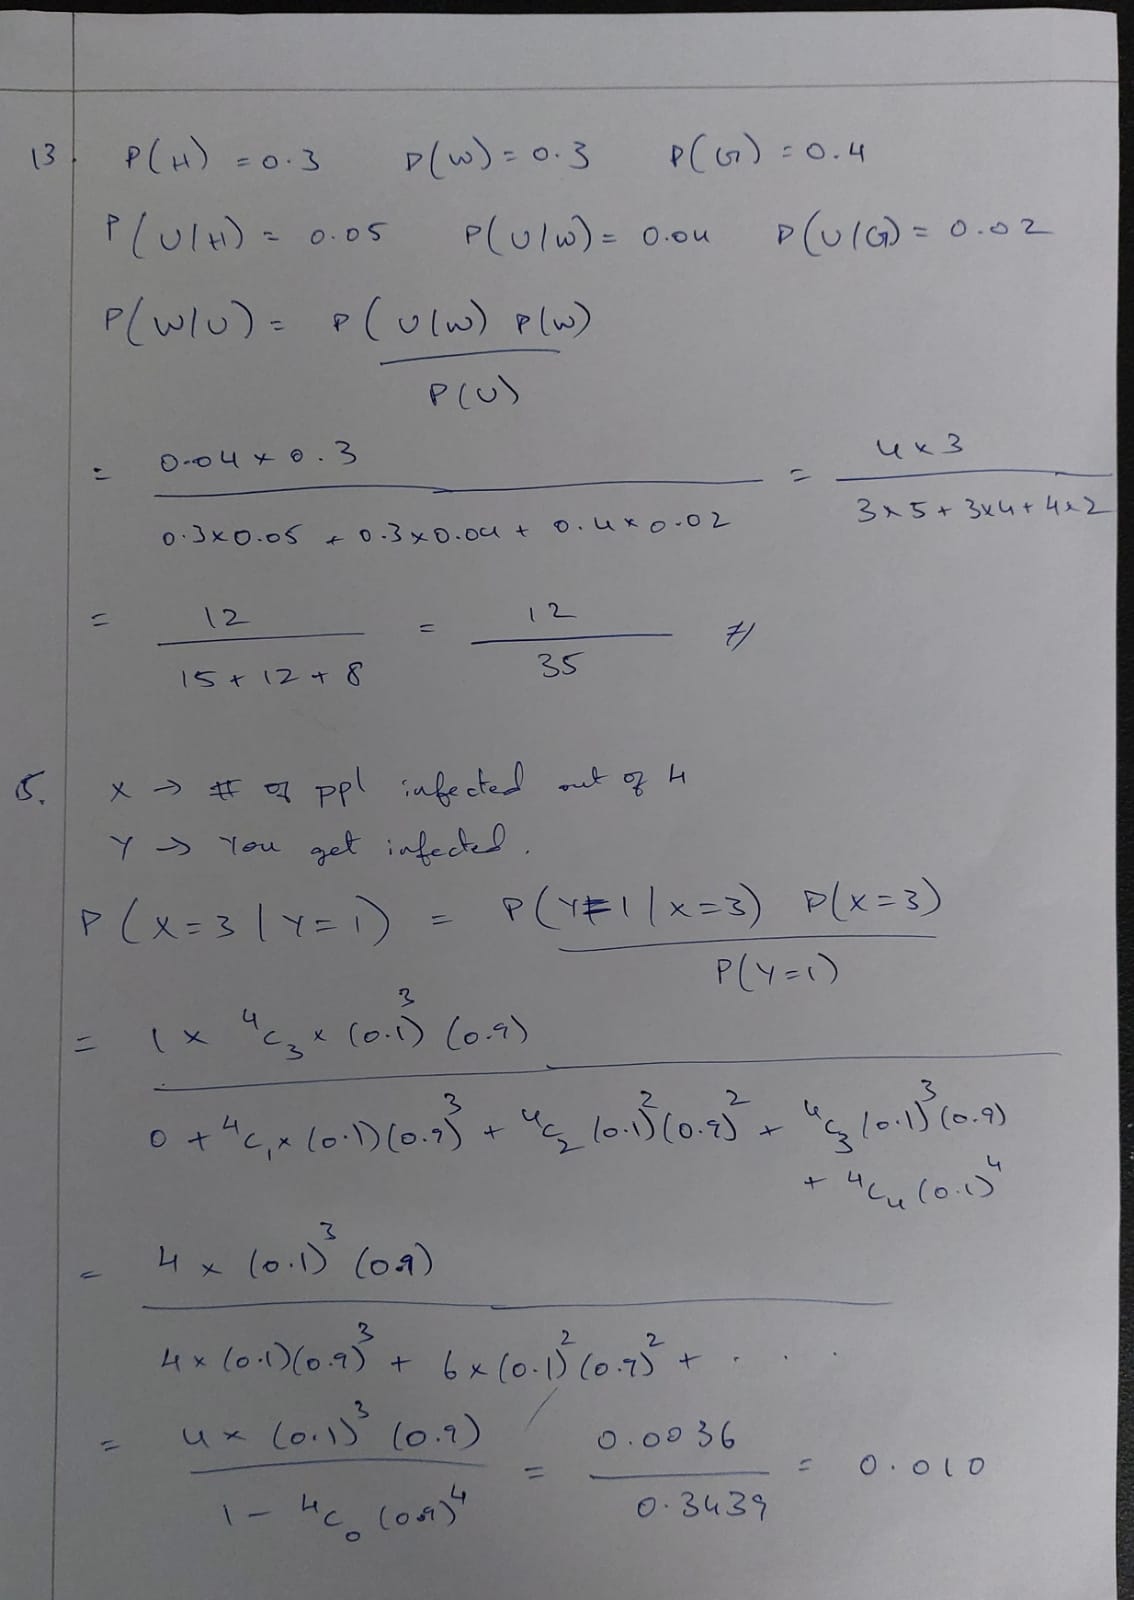 13. P(H) = 0.3 P(W) = 0.3 P(G) = 0.4
P(U/H) = 0.05 P(U/W) = 0.04 P(U/G) = 0.02
P(W/U) = P(U/W) P(W)
P(U)
= 0.04 × 0.3 = 4 × 3
0.3×0.05 + 0.3×0.04 + 0.4×0.02 3×5 + 3×4 + 4×2
= 12 = 12
15 + 12 + 8 35
5. X → # of ppl infected out of 4
Y → You get infected.
P(X=3 | Y=1) = P(Y=1 | X=3) P(X=3)
P(Y=1)
= 1 × ⁴C₃ × (0.1)³ (0.9)
0 + ⁴C₁ × (0.1)(0.9)³ + ⁴C₂ (0.1)²(0.9)² + ⁴C₃ (0.1)³(0.9)
+ ⁴C₄ (0.1)⁴
= 4 × (0.1)³ (0.9)
4 × (0.1)(0.9)³ + 6 × (0.1)² (0.9)² + . . .
= 4 × (0.1)³ (0.9) = 0.0036 = 0.010
1 - ⁴C₀ (0.9)⁴ 0.3439